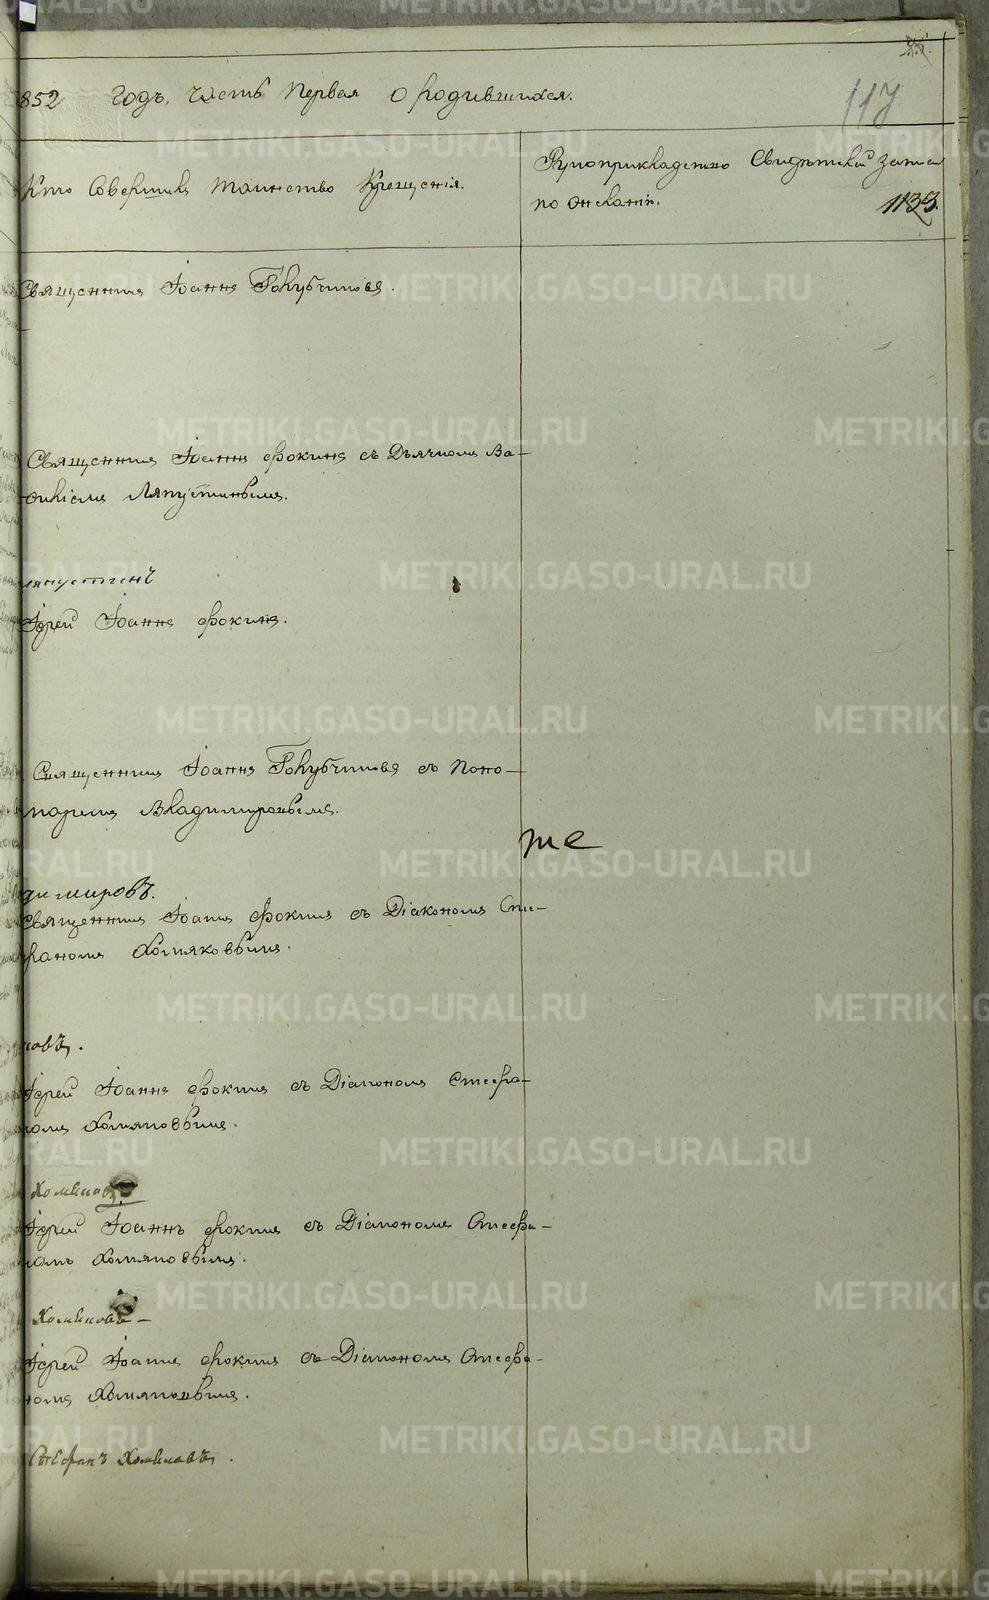 852 Годъ, Часть Первая О родившихся.
117
Кто Совершилъ Таинство Крещенія.
Рукоприкладство Свидѣтелей записи
по желанію.
1133.
Священникъ Іоаннъ Голубчиковъ.
Священникъ Іоаннъ Фокинъ съ Дьячкомъ Ва-
силіемъ Ляпустинымъ.
ляпустинъ
Іерей Іоаннъ Фокинъ.
Священникъ Іоаннъ Голубчиковъ съ Поно-
маремъ Владимировымъ.
те
димировъ.
Священникъ Іоаннъ Фокинъ съ Діакономъ Сте-
фаномъ Хомяковымъ.
ковъ.
Іерей Іоаннъ Фокинъ съ Діакономъ Стефа-
номъ Хомяковымъ.
Хомяковъ
Іерей Іоаннъ Фокинъ съ Діакономъ Стефа-
номъ Хомяковымъ.
Хомяковъ
Іерей Іоаннъ Фокинъ съ Діакономъ Стефа-
номъ Хомяковымъ.
Стефанъ Хомяковъ.
METRIKI.GASO-URAL.RU